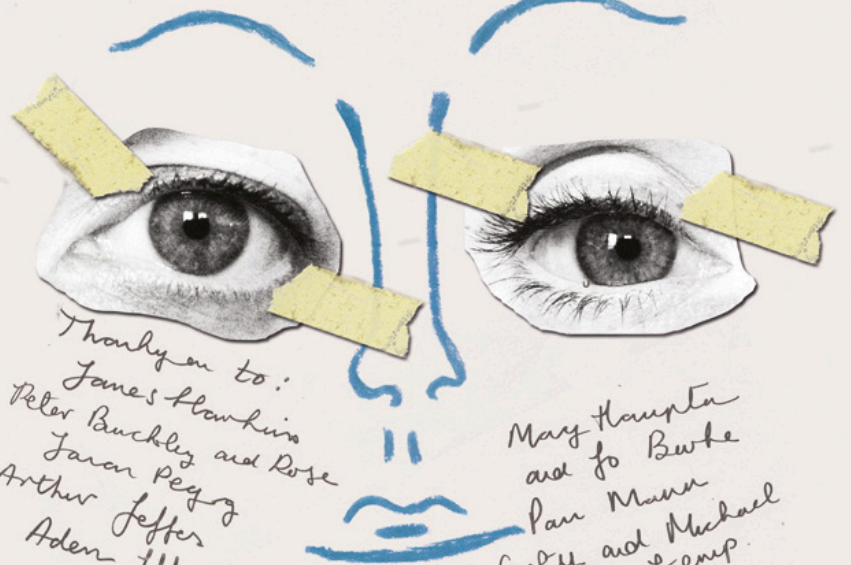 Thankyou to:
James Hawkins
Peter Buckley and Rose
Jason Pegg
Arthur Jeffes
Adem
May Hampton
and Jo Burke
Pam Mann
and Michael